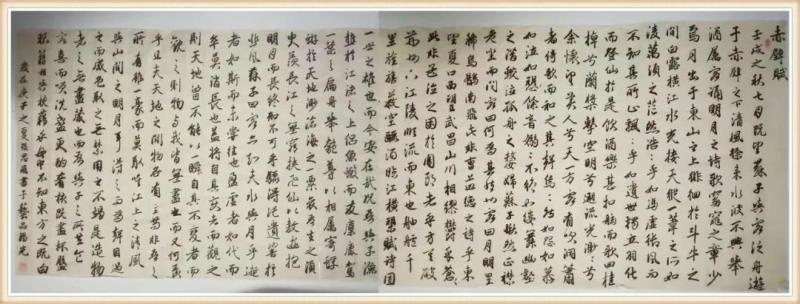 赤壁賦
壬戌之秋七月既望蘇子與客泛舟遊
于赤壁之下清風徐来水波不興舉
酒屬客誦明月之詩歌窈窕之章少
焉月出于東山之上徘徊于斗牛之
間白露横江水光接天縱一葦之所如
凌萬頃之茫然浩浩乎如馮虚御風而
不知其所止飄飄乎如遺世獨立羽化
而登仙于是飲酒樂甚扣舷而歌之歌曰桂
棹兮蘭槳擊空明兮溯流光渺渺兮
余懷望美人兮天一方客有吹洞蕭
者倚歌而和之其聲嗚嗚然如怨如慕
如泣如訴餘音嫋嫋不絕如縷舞幽壑
之潜蛟泣孤舟之嫠婦蘇子愀然正襟
危坐而問客曰何為其然也客曰月明星
稀烏鵲南飛此非曹孟德之詩乎東
望夏口西望武昌山川相繆鬱乎蒼蒼
此非孟德之困于周郎者乎方其破
荆州下江陵順流而東也舳艫千
里旌旗蔽空釃酒臨江横槊賦詩固
一世之雄也而今安在哉况吾與子漁
樵於江渚之上侣魚蝦而友麋鹿駕
一葉之扁舟舉匏尊以相屬寄蜉
蝣於天地渺滄海之一粟哀吾生之須
臾羨長江之無窮挾飛仙以遨遊抱
明月而長終知不可乎驟得托遺響於
悲風蘇子曰客亦知夫水與月乎逝
者如斯而未嘗往也盈虚者如代而
卒莫消長也盖將自其變者而觀之
則天地曾不能以一瞬自其不變者而
觀之則物與我皆無盡也而又何羨
乎且夫天地之間物各有主苟非吾之
所有雖一毫而莫取惟江上之清風
與山間之明月耳得之而為聲目遇
之而成色取之無禁用之不竭是造物
者之無盡藏也而吾與子之所共食
客喜而笑洗盞更酌肴核既盡杯盤
狼籍相與枕藉乎舟中不知東方之既白
歲在庚子之夏張忠順書于